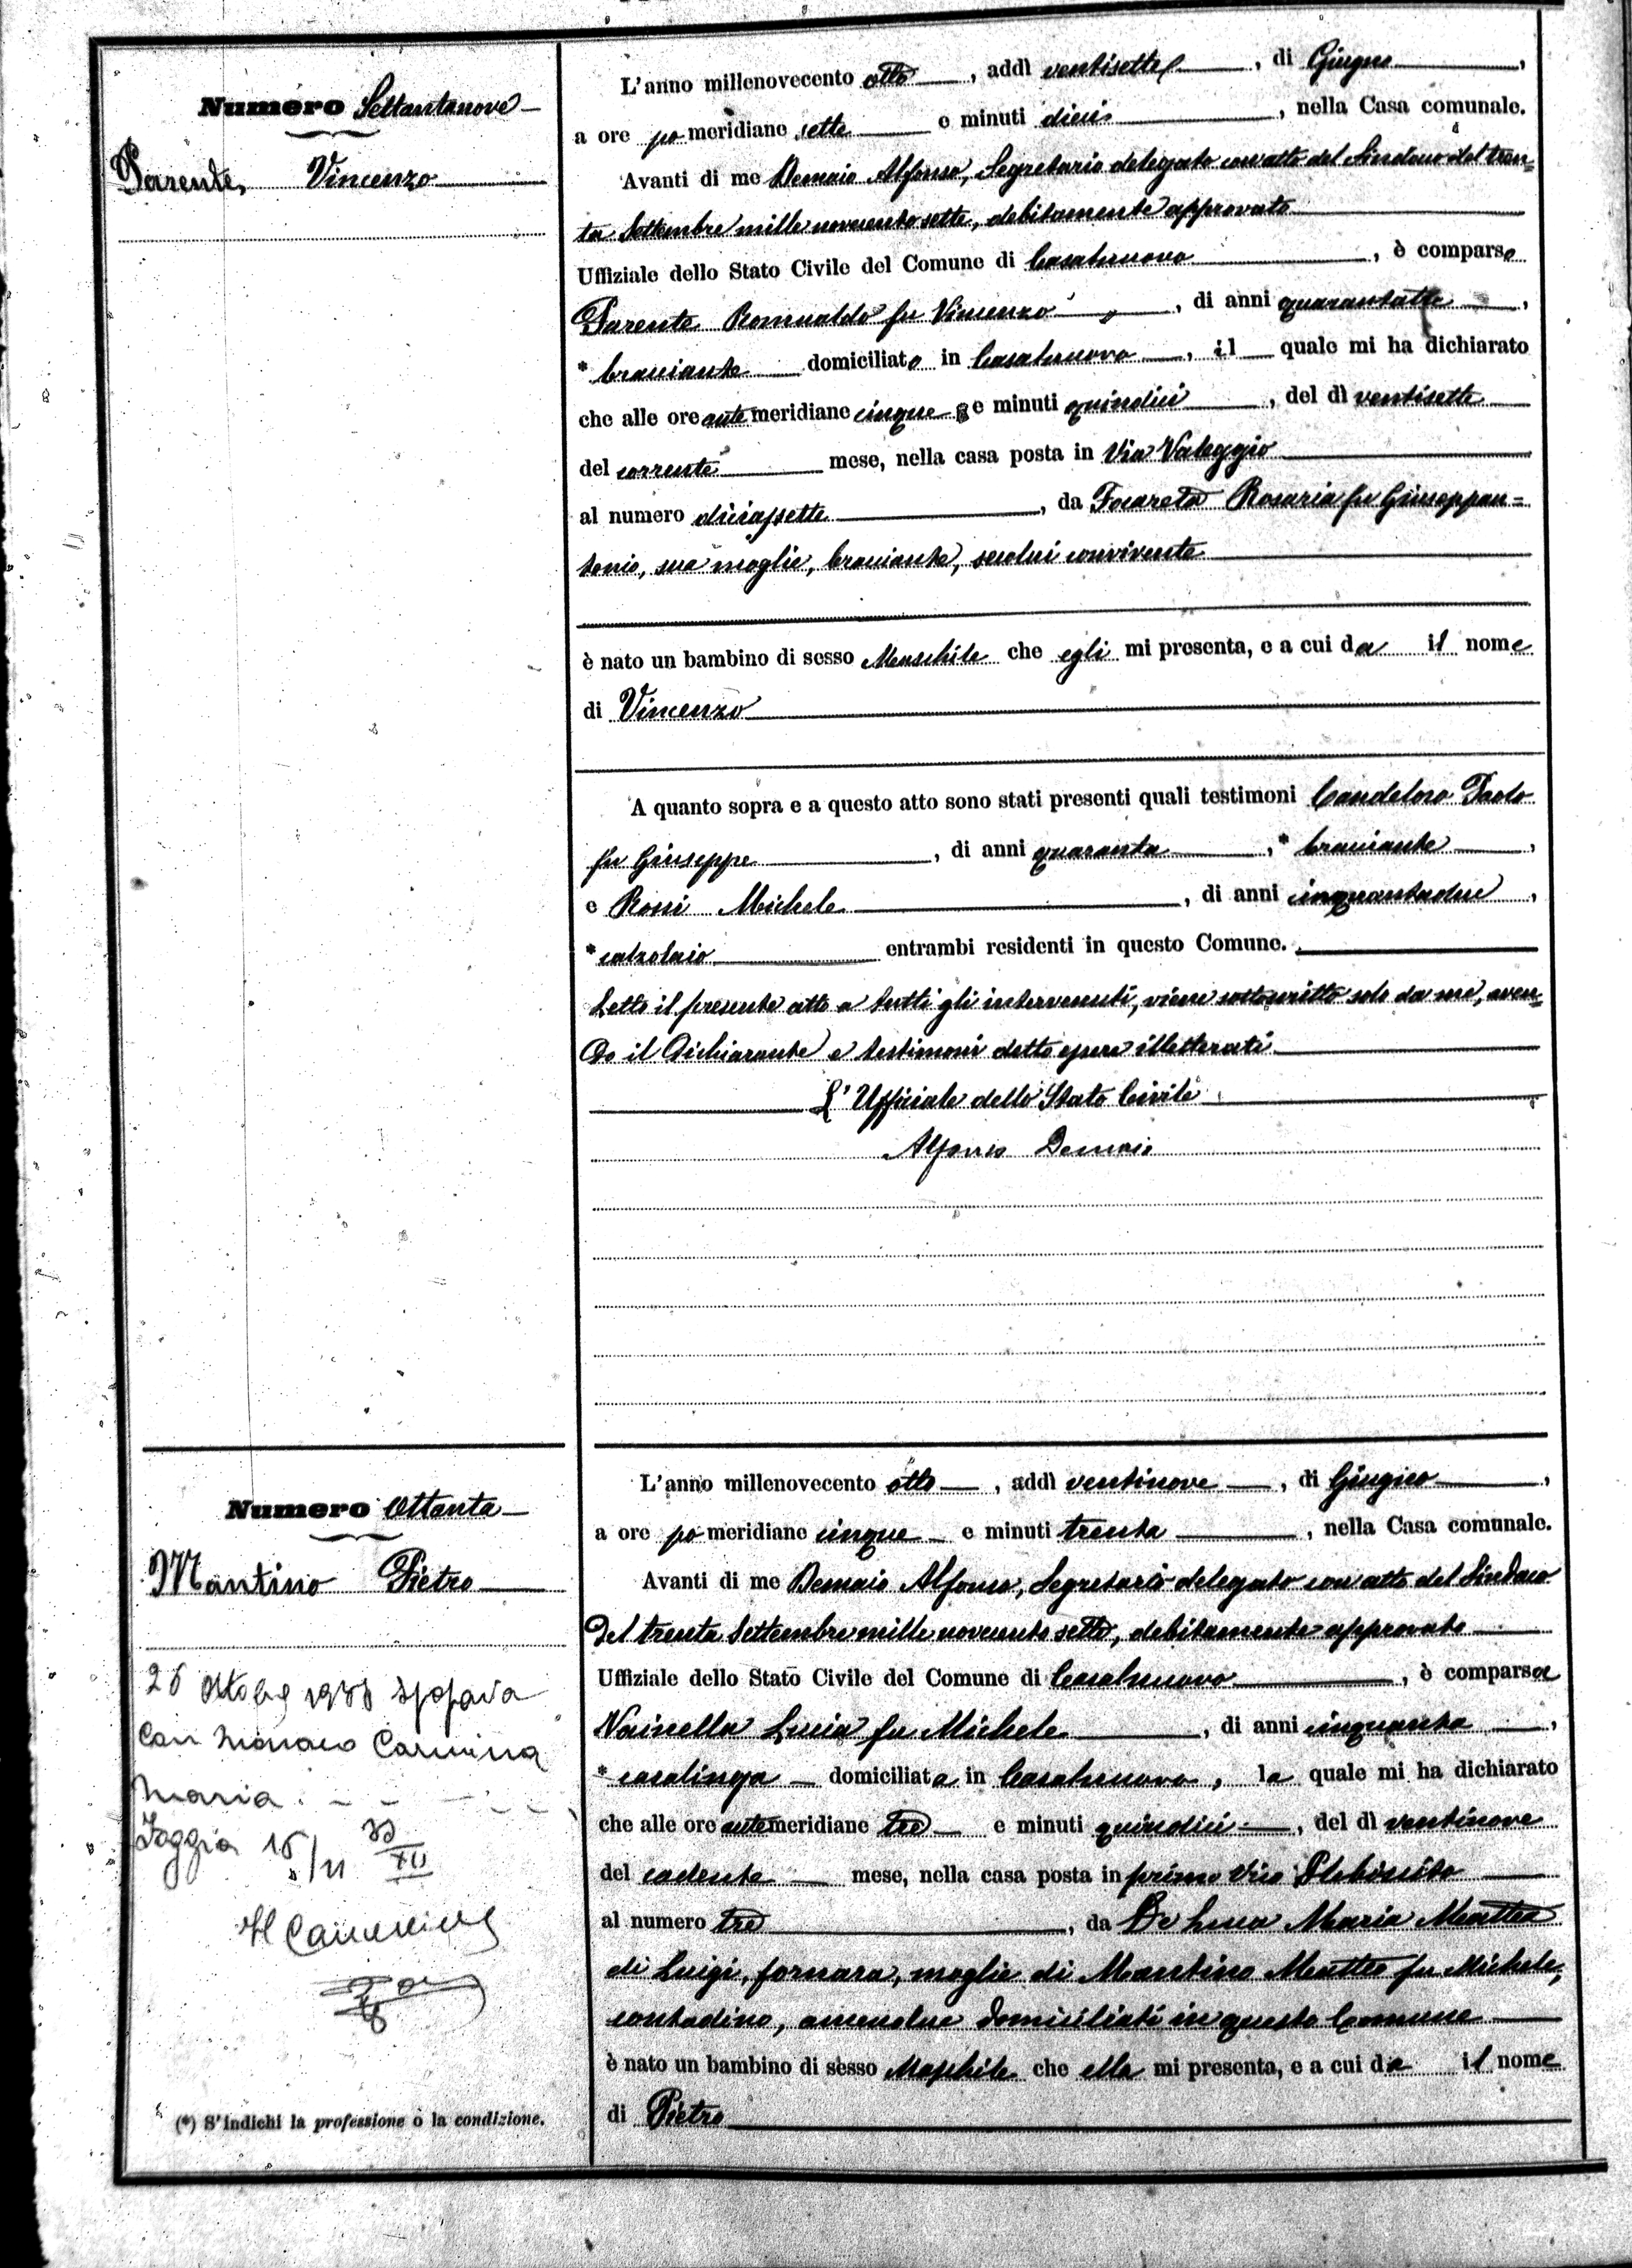 Numero Settantanove
Parente Vincenzo
L'anno millenovecento otto, addì ventisette, di Giugno,
a ore pomeridiane sette e minuti dieci, nella Casa comunale.
Avanti di me Demaio Alfonso, Segretario delegato con atto del Sindaco del tren=
ta Settembre mille novecento sette, debitamente approvato
Uffiziale dello Stato Civile del Comune di Casalnuovo, è comparso
Parente Romualdo fu Vincenzo, di anni quarantatre,
* bracciante domiciliato in Casalnuovo, il quale mi ha dichiarato
che alle ore antemeridiane cinque e minuti quindici, del dì ventisette
del corrente mese, nella casa posta in Via Valeggio
al numero diciassette, da Focareta Rosaria fu Giuseppan=
tonio, sua moglie, bracciante, secolui convivente
è nato un bambino di sesso Maschile che egli mi presenta, e a cui da il nome
di Vincenzo
A quanto sopra e a questo atto sono stati presenti quali testimoni Candeloro Paolo
fu Giuseppe, di anni quaranta, * bracciante,
e Rossi Michele, di anni cinquantadue,
* calzolaio entrambi residenti in questo Comune.
Letto il presente atto a tutti gli intervenuti, viene sottoscritto solo da me, aven=
do il dichiarante e testimoni detto essere illetterati
L'Ufficiale dello Stato Civile
Alfonso Demaio
Numero Ottanta
Mantino Pietro
Ottobre sposava
con Monaco Carmina
Maria
Foggia
(*) S'indichi la professione o la condizione.
L'anno millenovecento otto, addì ventinove, di Giugno,
a ore pomeridiane cinque e minuti trenta, nella Casa comunale.
Avanti di me Demaio Alfonso, Segretario delegato con atto del Sindaco
del trenta Settembre mille novecento sette, debitamente approvato
Uffiziale dello Stato Civile del Comune di Casalnuovo, è comparsa
Vainella Lucia fu Michele, di anni cinquanta,
* casalinga domiciliata in Casalnuovo, la quale mi ha dichiarato
che alle ore antemeridiane tre e minuti quindici, del dì ventinove
del cadente mese, nella casa posta in primo Vico Plebiscito
al numero tre, da De Luca Maria Mattea
di Luigi, fornara, moglie di Mantino Matteo fu Michele,
contadino, amendue domiciliati in questo Comune
è nato un bambino di sesso Maschile che ella mi presenta, e a cui da il nome
di Pietro